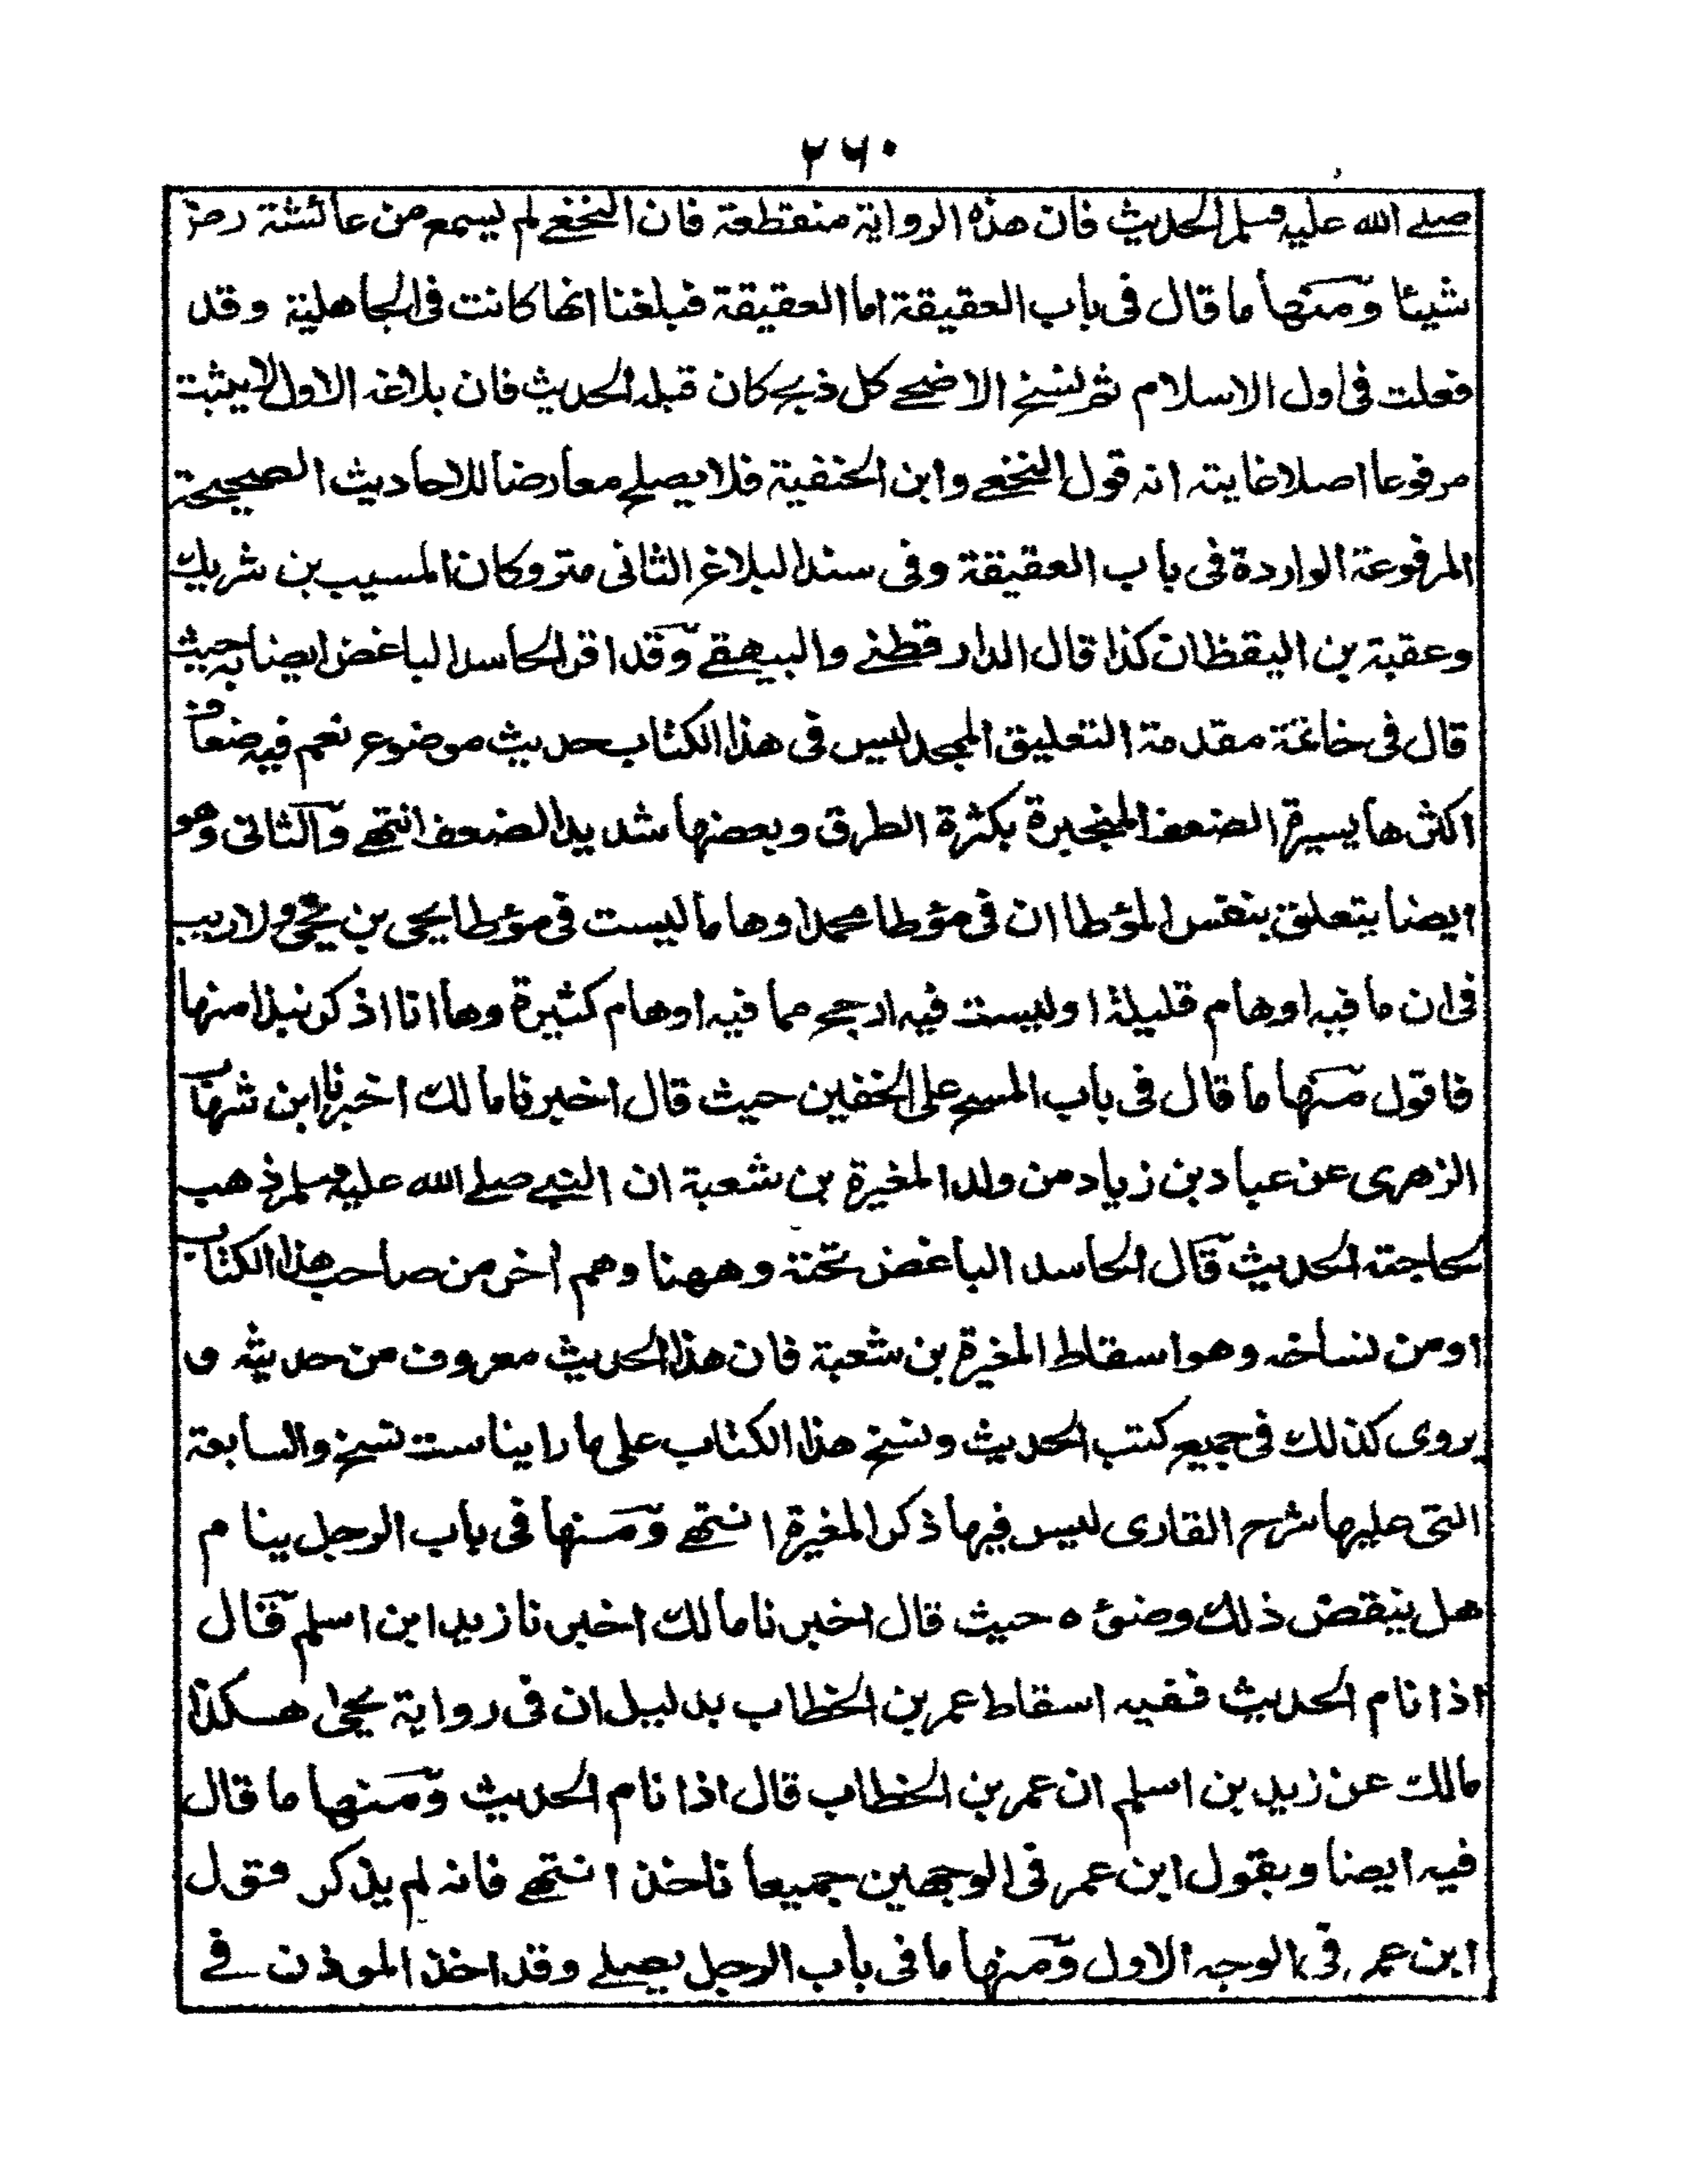 ٢٦٠
صلے الله عليه وسلم الحديث فان هذه الرواية منقطعة فان النخعے لم يسمع من عائشة رضز
شيئا ومنها ما قال فى باب العقيقة اما العقيقة فبلغنا انها كانت فى الجاهلية وقد
فعلت فى اول الاسلام ثم نسخ الاضحے كل ذبح كان قبله الحديث فان بلاغه الاول لا يثبت
مرفوعا اصلا غايته انه قول النخعے وابن الحنفية فلا يصلح معارضا للاحاديث الصحيحة
المرفوعة الواردة فى باب العقيقة وفى سند البلاغ الثانى متروكان المسيب بن شريك
وعقبة بن اليقظان كذا قال الدار قطنے والبيهقے وقد اقر الحاسد الباغض ايضا به حيث
قال فى خاتمة مقدمة التعليق الممجد ليس فى هذا الكتاب حديث موضوع نعم فيه ضعاف
اكثرها يسيرة الضعف المنجبرة بكثرة الطرق وبعضها شديد الضعف انتهے والثانى وهو
ايضا يتعلق بنفس المؤطا ان فى مؤطا محمد اوهاما ليست فى مؤطا يحيى بن يحيى ولا ريب
فى ان ما فيه اوهام قليلة او ليست فيه ارجح مما فيه اوهام كثيرة وها انا اذكر نبذا منها
فاقول منها ما قال فى باب المسح على الخفين حيث قال اخبرنا مالك اخبرنا ابن شهاب
الزهرى عن عباد بن زياد من ولد المغيرة بن شعبة ان النبے صلے الله عليه وسلم ذهب
لحاجته الحديث قال الحاسد الباغض تحته وههنا وهم اخر من صاحب هذا الكتاب
او من نساخه وهو اسقاط المغيرة بن شعبة فان هذا الحديث معروف من حديثه و
يروى كذلك فى جميع كتب الحديث ونسخ هذا الكتاب على ما راينا ست نسخ والسابعة
التى عليها شرح القارى ليس فيها ذكر المغيرة انتهے ومنها فى باب الرجل ينام
هل ينقض ذلك وضوءه حيث قال اخبرنا مالك اخبرنا زيد ابن اسلم قال
اذا نام الحديث ففيه اسقاط عمر بن الخطاب بدليل ان فى رواية يحيى هكذا
مالك عن زيد بن اسلم ان عمر بن الخطاب قال اذا نام الحديث ومنها ما قال
فيه ايضا وبقول ابن عمر فى الوجهين جميعا ناخذ انتهے فانه لم يذكر قول
ابن عمر فى الوجه الاول ومنها ما فى باب الرجل يصلے وقد اخذ الموذن فے